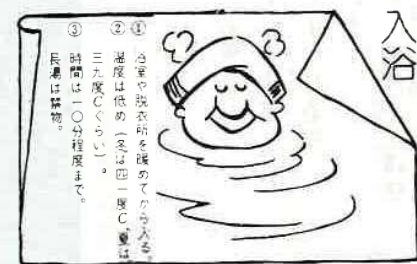 入浴
① 浴室や脱衣所を暖めてから入る。
② 温度は低め（冬は四一度C、夏は
三九度Cぐらい）。
③ 時間は一〇分程度まで。
長湯は禁物。